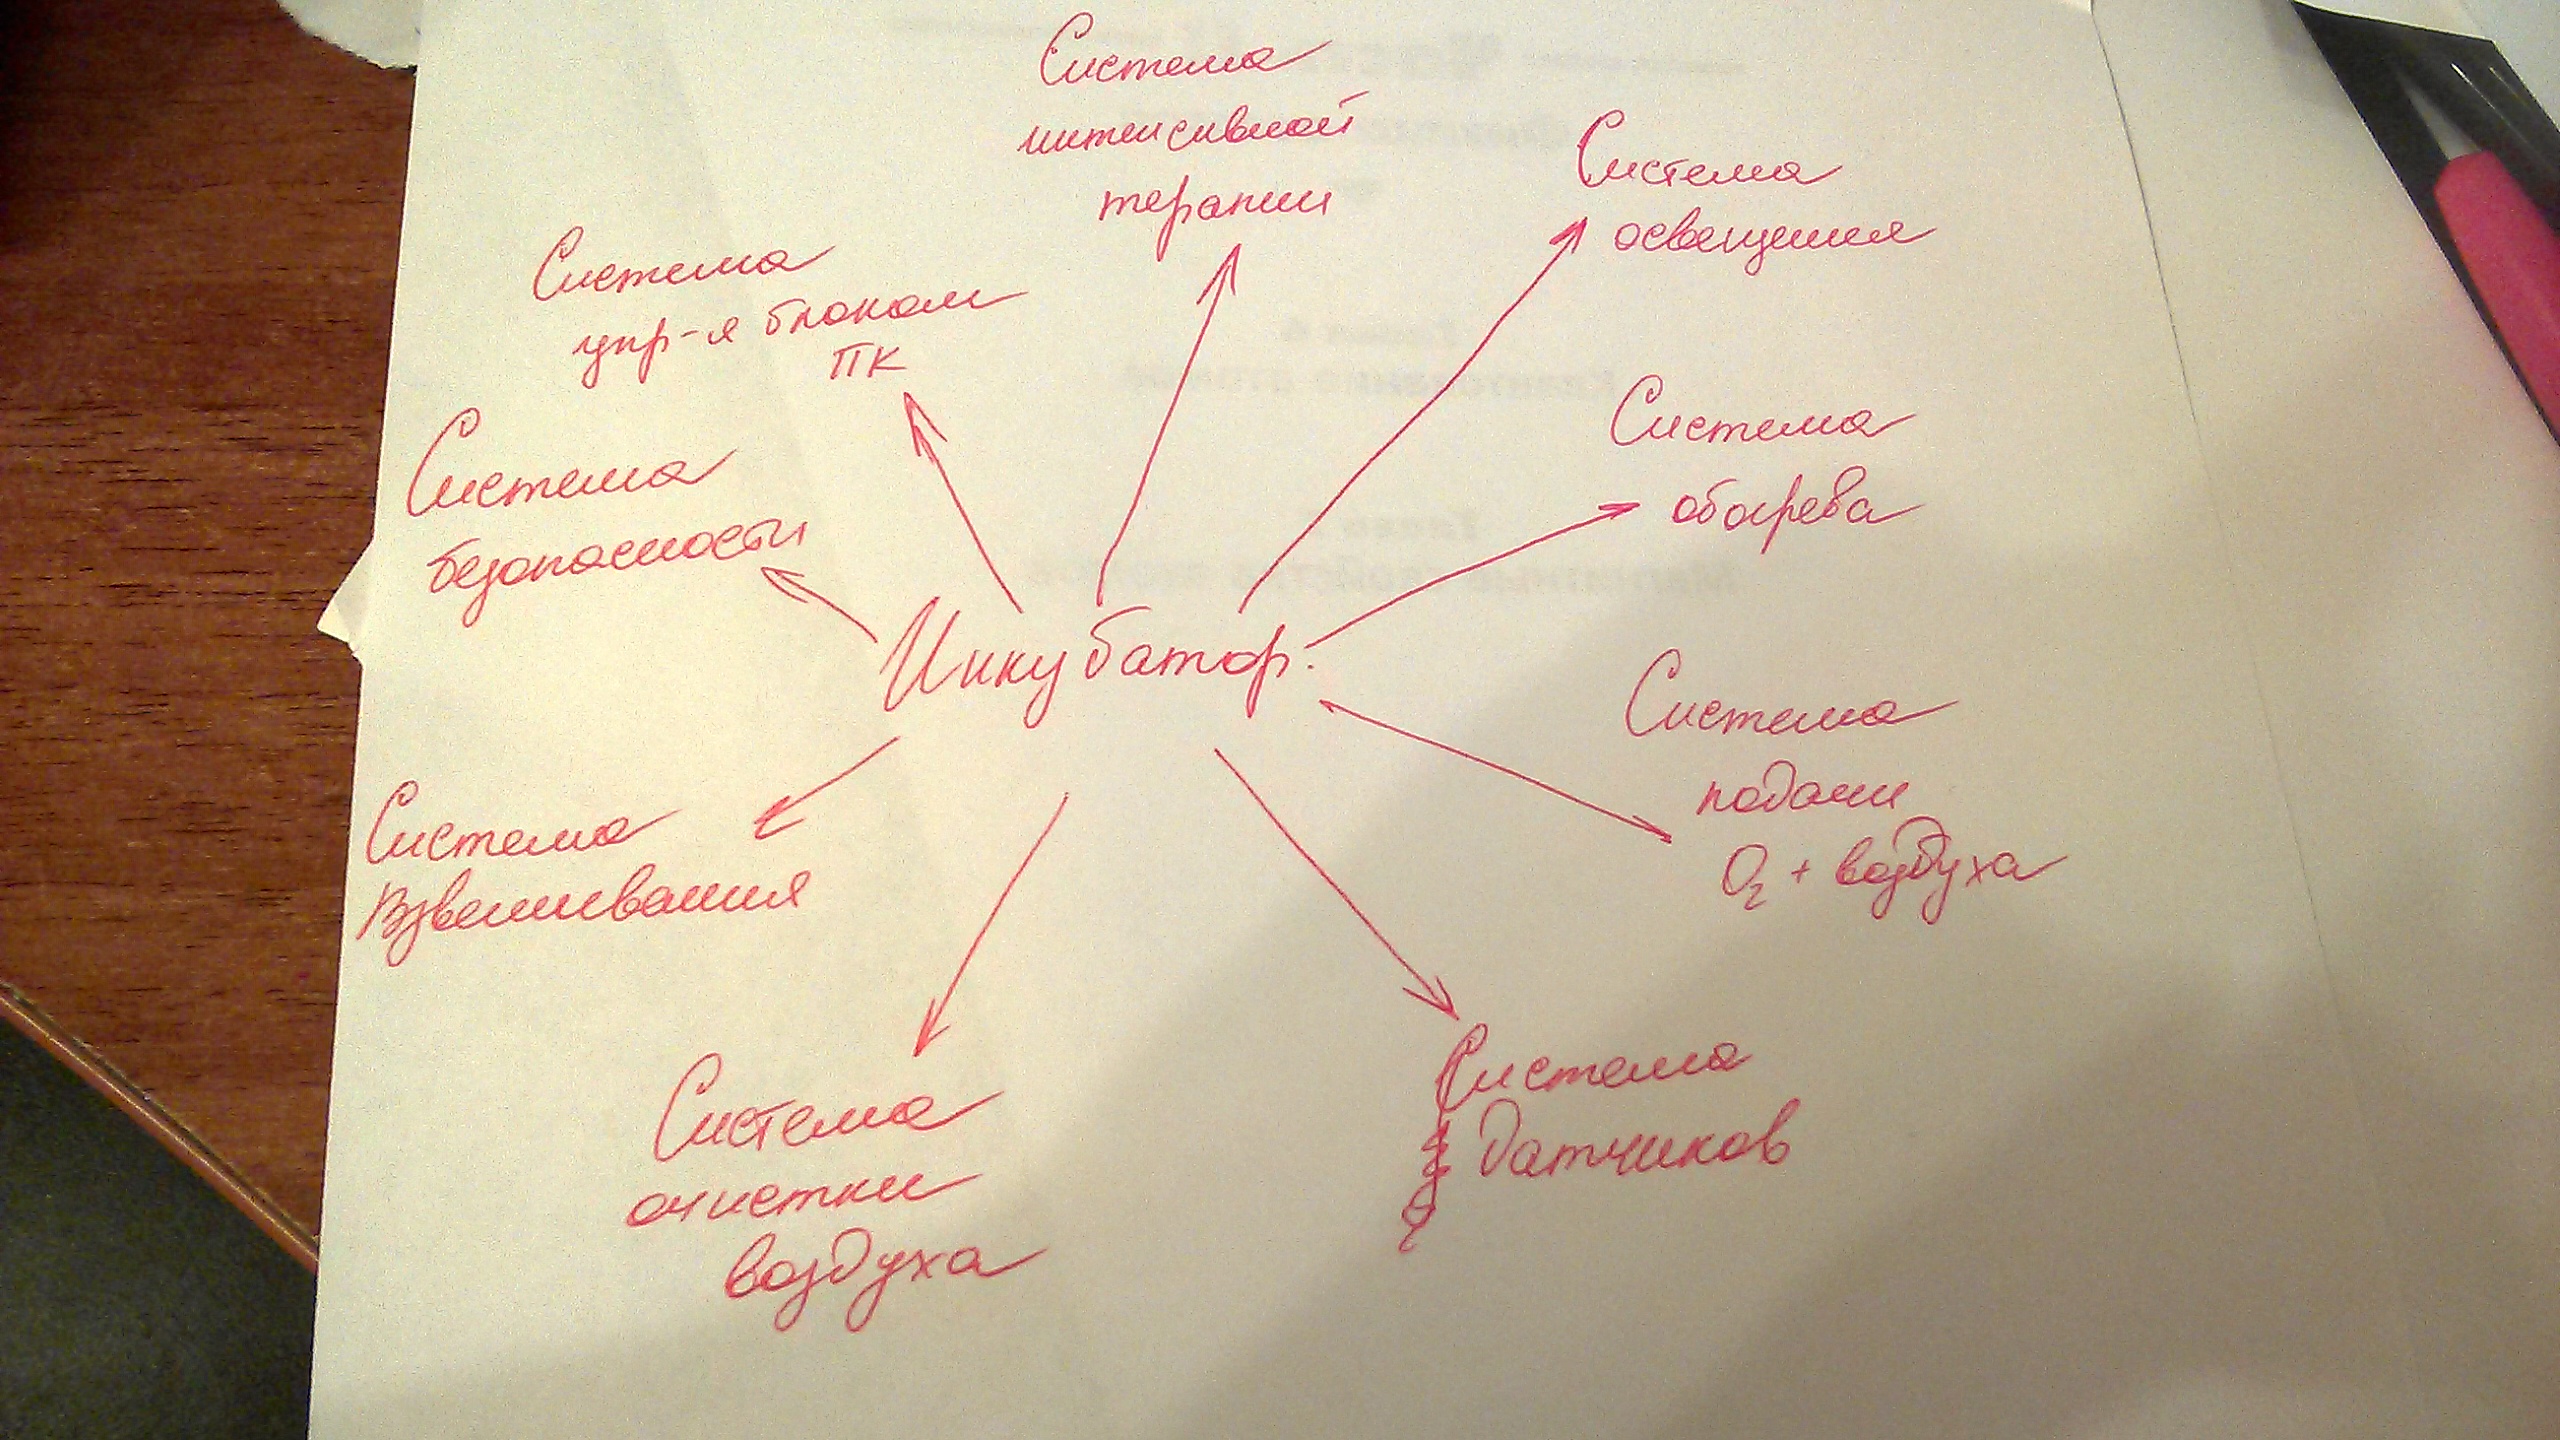 Система
интенсивной
терапии
Система
освещения
Система
упр-я блоком
ПК
Система
обогрева
Система
безопасности
Инкубатор.
Система
подачи
O₂ + воздуха
Система
взвешивания
Система
датчиков
Система
очистки
воздуха